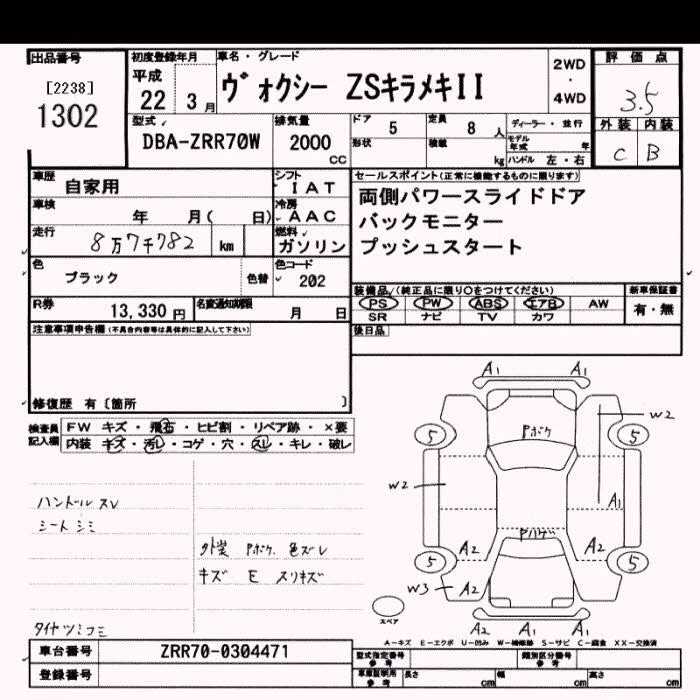 出品番号
[2238]
1302
初度登録年月
平成
22 3月
車名・グレード
ヴォクシー ZSキラメキII
2WD
・
4WD
評価点
3.5
外装 内装
C B
型式
DBA-ZRR70W
排気量
2000
CC
ドア 5
定員 8 人
形状
積載 kg
ディーラー・並行
モデル年式 年
ハンドル 左・右
車歴
自家用
シフト
IAT
車検
年 月( 日)
冷房
AAC
走行
8万7千782 km
燃料
ガソリン
色
ブラック
色替
色コード
202
R券
13,330 円
名変通知期限
月 日
セールスポイント(正常に機能するものに限ります)
両側パワースライドドア
バックモニター
プッシュスタート
装備品/(純正品に限り○をつけてください)
PS PW ABS エアB AW
SR ナビ TV カワ
新車保証書
有・無
後日品
注意事項申告欄(不具合内容等は具体的に記入して下さい)
修復歴 有〔箇所 〕
検査員
記入欄
FW キズ・飛石・ヒビ割・リペア跡・×要
内装 キズ・汚レ・コゲ・穴・スレ・キレ・破レ
ハンドル スレ
シート シミ
外装 Pボケ 色ズレ
キズ E スリキズ
タイヤツミコミ
A1 A1
W2
Pボケ
5 5
W2
A1
Pハゲ
A2 A2
5 5
W3 A2
スペア
A2 A1 A1
A-キズ E-エクボ U-凹み W-補修跡 S-サビ C-腐食 XX-交換済
車台番号
ZRR70-0304471
登録番号
型式指定番号
参考
類別区分番号
参考
車庫証明用
参考
長さ cm
幅 cm
高さ cm